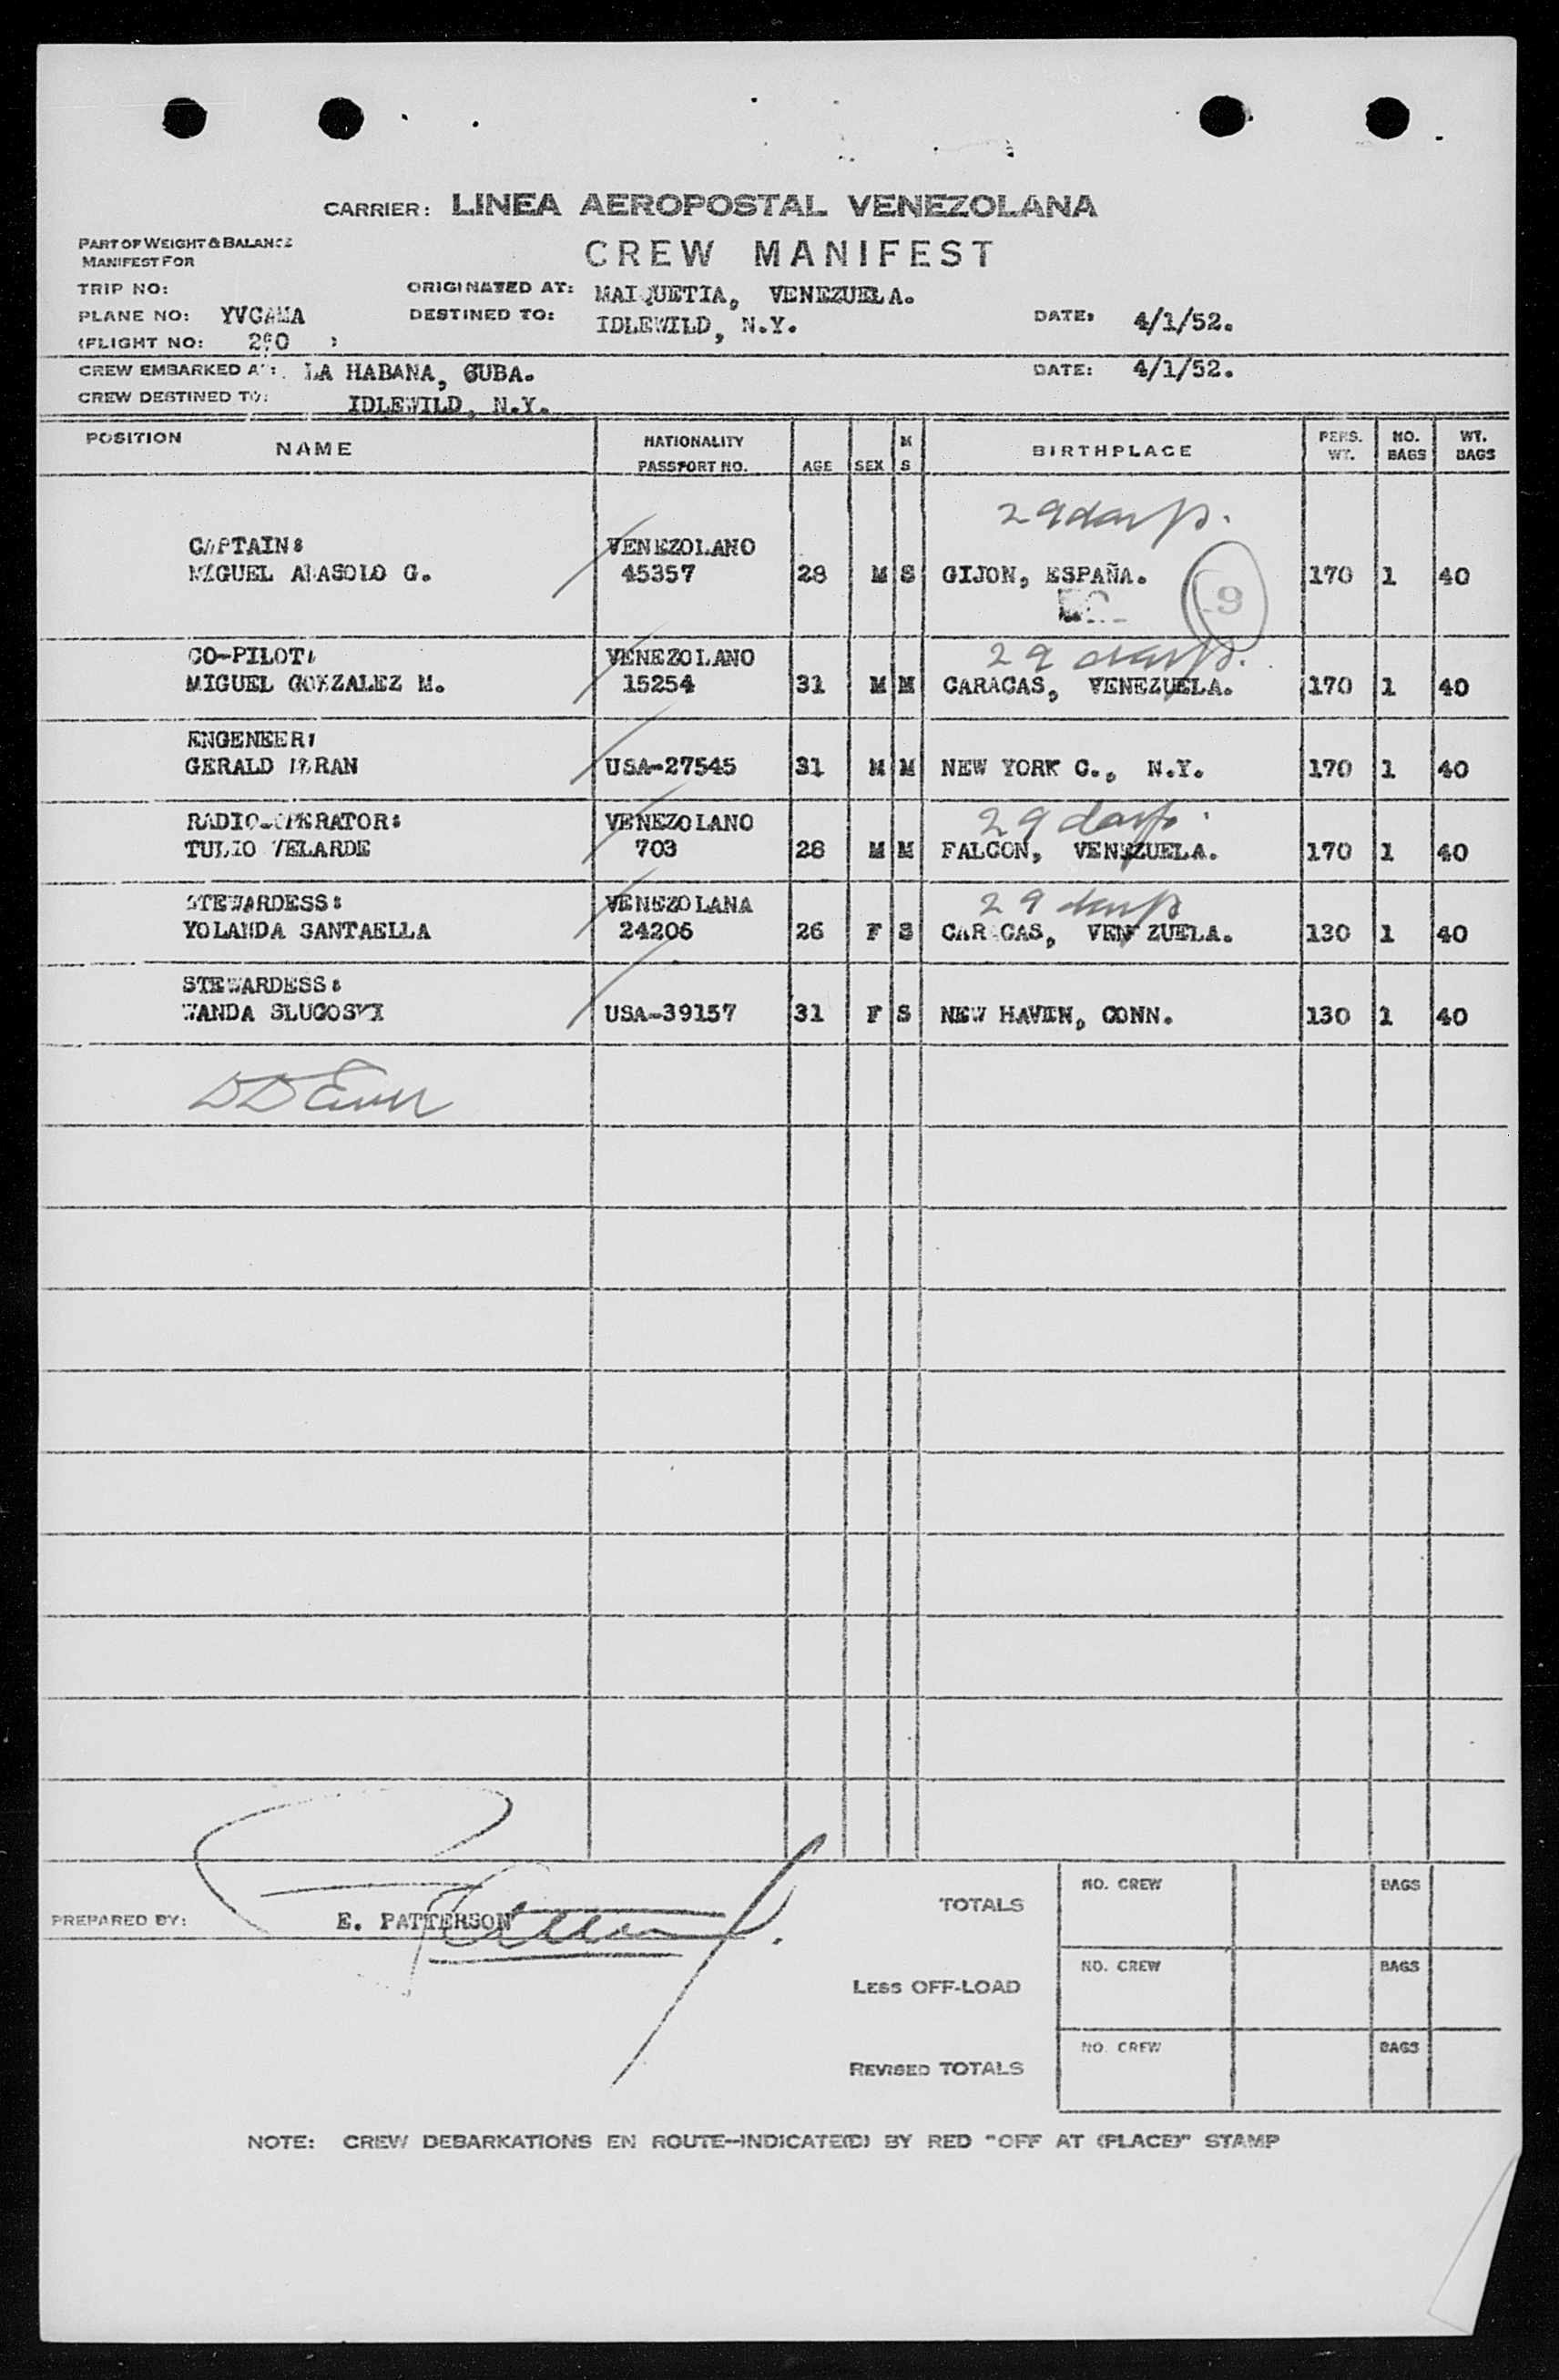 CARRIER: LINEA AEROPOSTAL VENEZOLANA
PART OF WEIGHT & BALANCE
MANIFEST FOR
CREW MANIFEST
TRIP NO: ORIGINATED AT: MAIQUETIA, VENEZUELA.
PLANE NO: YVCAMA DESTINED TO: IDLEWILD, N.Y. DATE: 4/1/52.
(FLIGHT NO: )
CREW EMBARKED AT: LA HABANA, CUBA. DATE: 4/1/52.
CREW DESTINED TO: IDLEWILD, N.Y.
POSITION NAME NATIONALITY PASSPORT NO. AGE SEX M S BIRTHPLACE PERS. WT. NO. BAGS WT. BAGS
29 days.
CAPTAIN: VENEZOLANO
MIGUEL ARASOLO G. 45357 28 M S GIJON, ESPAÑA. 9 170 1 40
CO-PILOT: VENEZOLANO 29 days.
MIGUEL GONZALEZ M. 15254 31 M M CARACAS, VENEZUELA. 170 1 40
ENGENEER:
GERALD USA-27545 31 M M NEW YORK C., N.Y. 170 1 40
RADIO-OPERATOR: VENEZOLANO 29 days.
TULIO VELARDE 703 28 M M FALCON, VENEZUELA. 170 1 40
STEWARDESS: VENEZOLANA 29 days
YOLANDA SANTAELLA 24206 26 F S CARACAS, VENEZUELA. 130 1 40
STEWARDESS:
WANDA SLUGOSKI USA-39157 31 F S NEW HAVEN, CONN. 130 1 40
PREPARED BY: E. PATTERSON
TOTALS NO. CREW BAGS
LESS OFF-LOAD NO. CREW BAGS
REVISED TOTALS NO. CREW BAGS
NOTE: CREW DEBARKATIONS EN ROUTE-INDICATE(D) BY RED "OFF AT (PLACE)" STAMP